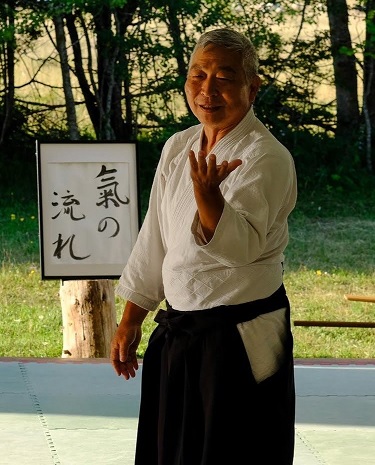 氣の
流れ